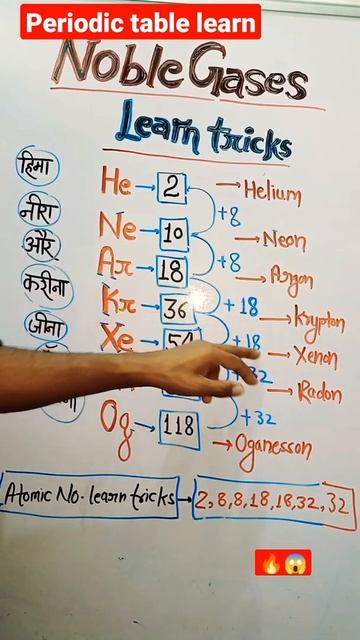 Periodic table learn
Noble Gases
Learn tricks
हिमा He → 2 → Helium
+8
नीरा Ne → 10 → Neon
और Ar → 18 +8 → Argon
करीना Kr → 36 +18 → Krypton
जीना Xe → 54 +18 → Xenon
32 → Radon
Og → 118 +32
→ Oganesson
Atomic No. learn tricks → 2, 8, 8, 18, 18, 32, 32